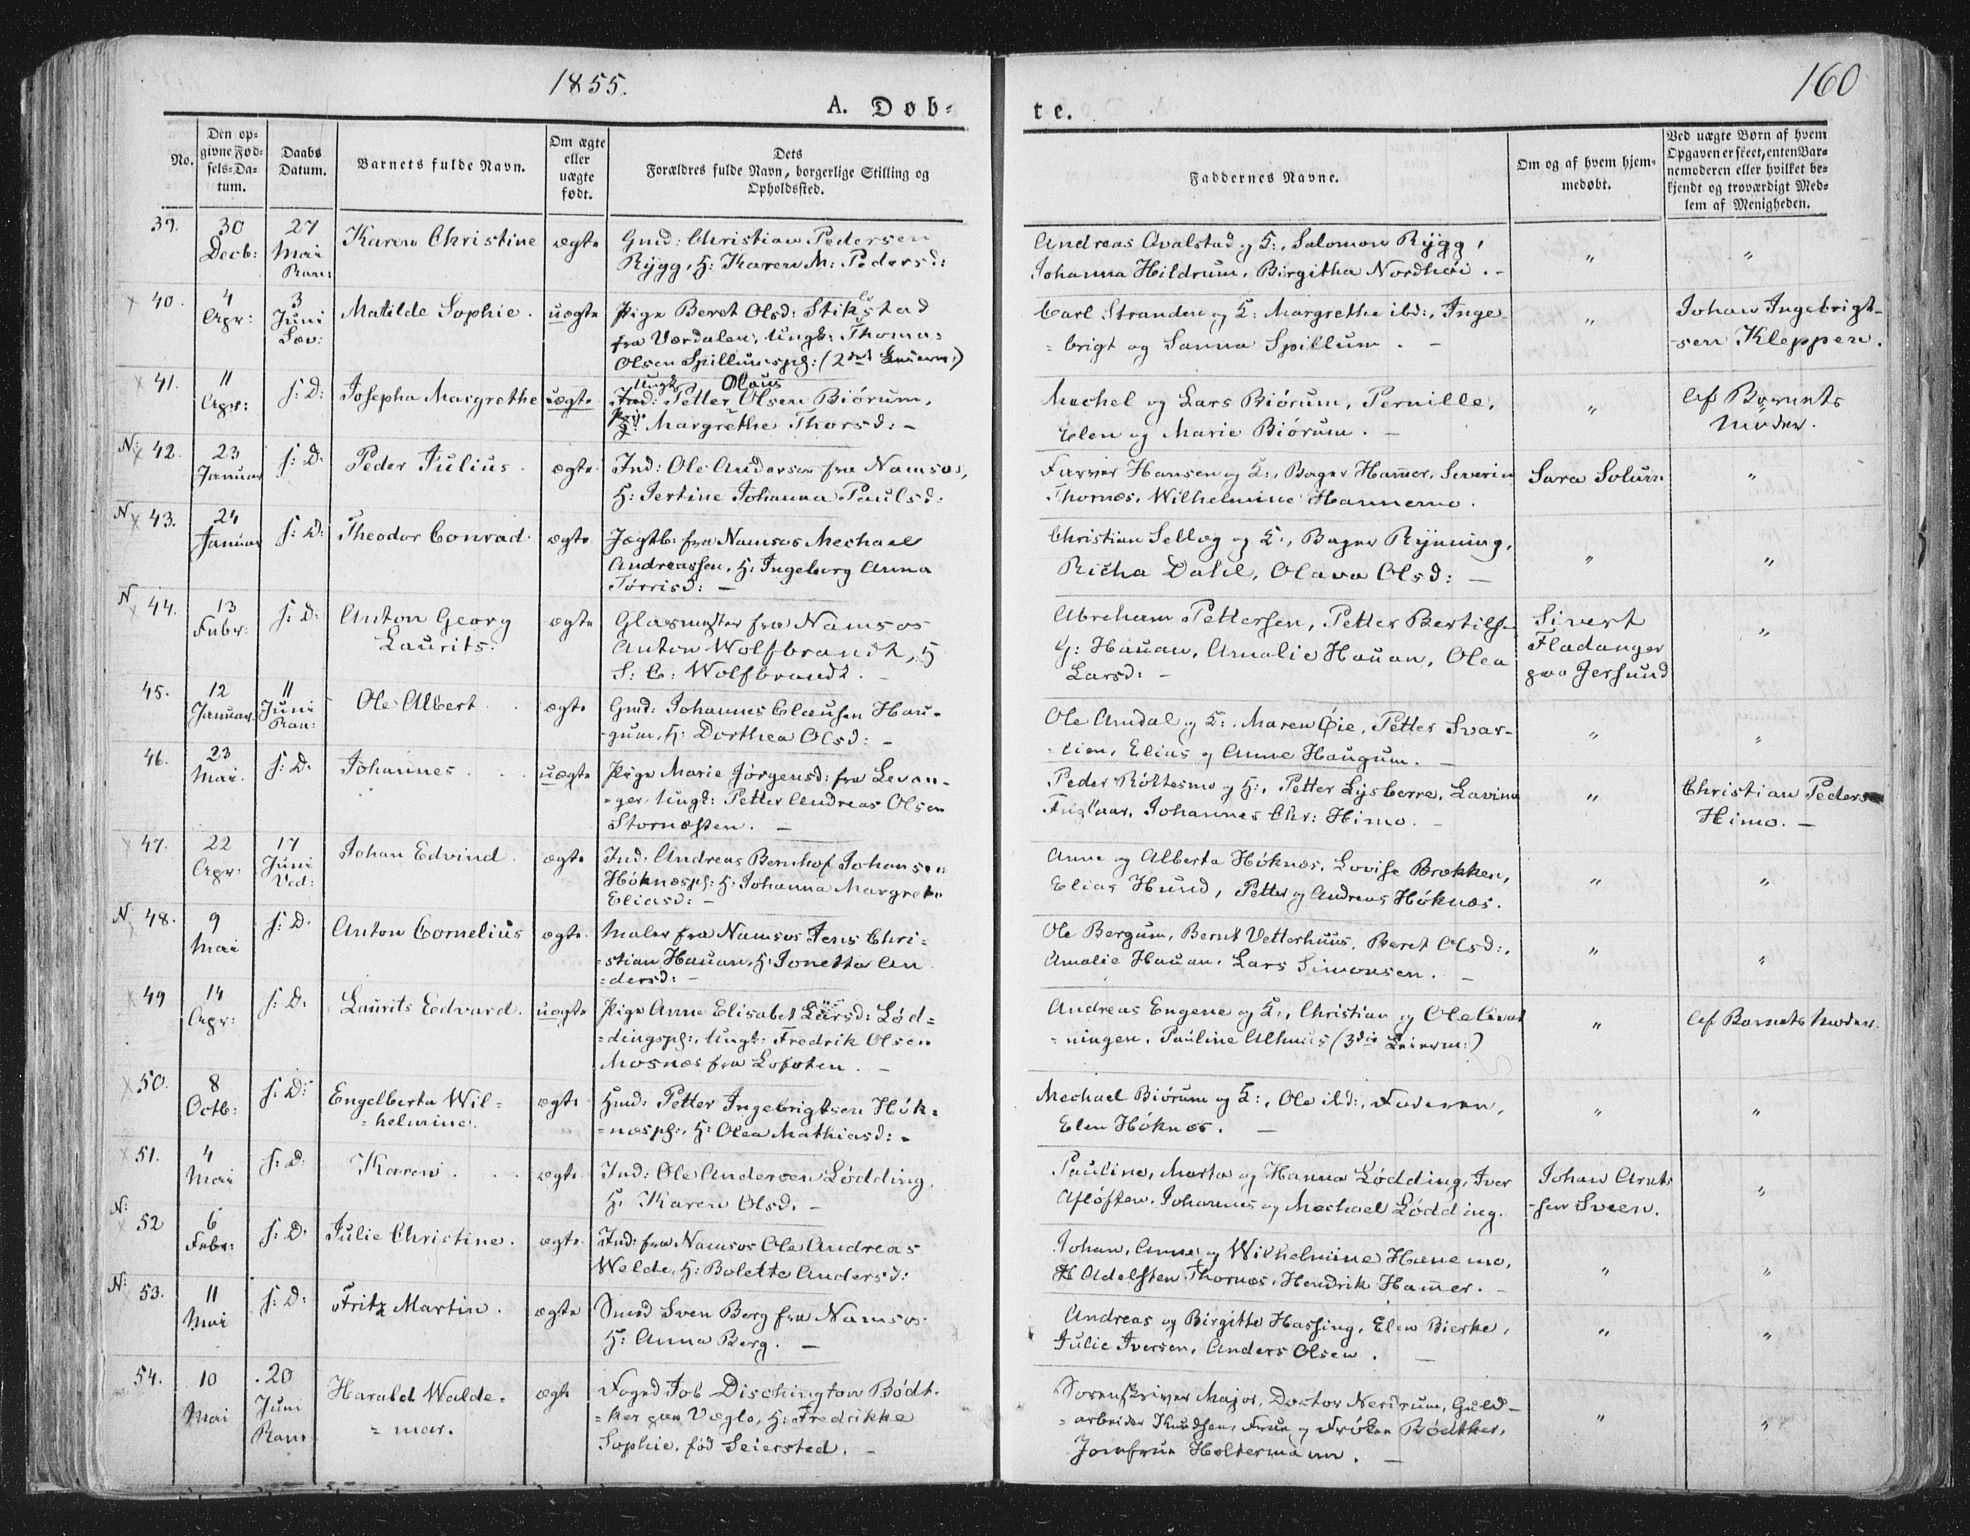 1855.
160
A. Døb-
te.
No.
Den op-
givne Fød-
sels-Da-
tum.
Daabs
Datum.
Barnets fulde Navn.
Om ægte
eller
uægte
født.
Dets
Forældres fulde Navn, borgerlige Stilling og
Opholdssted.
Faddernes Navne.
Om og af hvem hjem-
medøbt.
Ved uægte Børn af hvem
Opgaven er skeet, enten Bar-
nemoderen eller hvilket be-
kjendt og troværdigt Med-
lem af Menigheden.
39. 30 27 Karen Christine ægte Gmd: Christian Pedersen
Decb: Mai Rygg, H: Karen M: Pedersd:
Ran:
Andreas Avalstad og K:, Salomon Rygg,
Johanna Hildrum, Birgitha Nordhøi. - " "
40. 4 3 Matilde Sophie. uægte Pige Beret Olsd: Stiklestad
Apr: Juni fra Værdalen, Ungk: Thomas
Sæv: Olsen Spillumspl: (2det Leierm:)
Carl Stranden og K: Margrethe ibd:, Inge-
=brigt og Sanna Spillum. - " Johan Ingebrigt-
-sen Kleppen.
41. 11 s: D: Josepha Margrethe uægte Ungk Olaus
Apr: Ind: Petter Olsen Biørum,
Pige Margrethe Thorsd: -
Mechel og Lars Biørum, Pernille,
Elen og Marie Biørum. - " Af Barnets
Moder.
N: 42. 23 s: D: Peder Julius. ægte Ind: Ole Andersen fra Namsos,
Januar H: Jertine Johanna Paulsd:
Farver Hansen og K:, Bager Hamer, Severin
Thornæs, Wilhelmine Hannemo. Sara Solum "
N 43. 24 s: D: Theodor Conrad. ægte Jægtb: fra Namsos Mechael
Januar Andreassen, H: Ingeborg Anna
Tørrisd: -
Christian Sellæg og K:, Bager Rynning,
Richa Dahl, Olava Olsd: - " "
N 44. 13 s: D: Anton Georg ægte Glasmester fra Namsos
Febr: Laurits. Anton Wolfbrandt, H
S: C: Wolfbrandt. -
Abraham Pettersen, Petter Bertils
G: Hauan, Amalie Hauan, Olea
Larsd: - Sivert
Fladanger
paa Jersund "
45. 12 11 Ole Albert. ægte Gmd: Johannes Clausen Hau-
Januar. Juni -gum, H: Dorthea Olsd: -
Ran:
Ole Amdal og K:, Maren Øie, Petter Svar-
-lien, Elias og Anne Haugum. - " "
46. 23 s: D. Johannes. uægte Pige Marie Jørgensd: fra Levan-
Mai. =ger, Ungk: Petter Andreas Olsen
Stornæsten. -
Peder Røttesmo og H:, Petter Lysberre, Lavina
Johannes Chr: Himo. - " Christian Pedersen
Himo. -
47. 22 17 Johan Edvind. ægte Ind: Andreas Bernhof Johansen
Apr: Juni Høknæspl: H: Johanna Margrete
Ved: Eliasd: -
Anne og Alberta Høknæs, Lovise Brækken,
Elias Hund, Petter og Andreas Høknæs. " "
N: 48. 9 s: D. Anton Cornelius ægte. Maler fra Namsos Jens Chri-
Mai =stian Hauan, H: Jonetta An
=dersd: -
Ole Bergum, Bernt Vetterhuus, Beret Olsd:,
Amalie Hauan, Lars Simonsen. - " "
49 14 s: D: Laurits Edvard. uægte Pige Anne Elisabet Larsd: Lød=
Apr: =dingspl:, Ungk: Fredrik Olsen
Mosnæs fra Lofoten. -
Andreas Engene og K:, Christian og Ole
=ningen, Pauline Alhuus (3die Leierm:) " Af Barnets Moder.
50. 8 s: D: Engelberta Wil= ægte Hmd: Petter Ingebrigtsen Høk=
Octb: =helmine. =næspl:, H: Olea Mathiasd: -
Mechael Biørum og K:, Ole ibd:, Faderen,
Elen Høknæs. - " "
51. 4 s: D. Karen. ægte. Ind: Ole Andersen Lødding.
Mai H. Karen Olsd. -
Pauline, Marta og Hanna Lødding, Iver
Afløften, Johannes og Mechael Lødding. Johan Arnt-
-sen Sveen. "
N: 52 6 s: D. Julie Christine. ægte. Ind: fra Namsos Ole Andreas
Febr: Welde, H: Bolette Andersd:
Johan, Anne og Wilhelmine Hanemo,
Adelsten Thornæs, Hendrik Hamer. - " "
N: 53. 11 s: D: Fritz Martin. ægte Smed Sven Berg fra Namsos
Mai H: Anna Berg. -
Andreas og Birgitte Hassing, Elen Bierke,
Julie Iversen, Anders Olsen. - " "
54. 10 20 Harald Walde= ægte Foged Job Dischington Bødt-
Mai Juni =mar. =ker paa Væglo, H: Fredrikke
Ran: Sophie, fød Seiersted. -
Sorenskriver Major, Doctor Nerdrum, Guld-
=arbeider Knudsen, Frue og Frøken Bødtker,
Jomfrue Holtermann. - " "